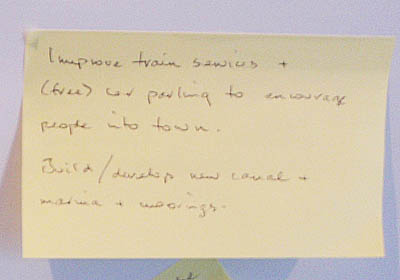 Improve train services +
(free) car parking to encourage
people into town.
Build/develop new canal +
marina + moorings.